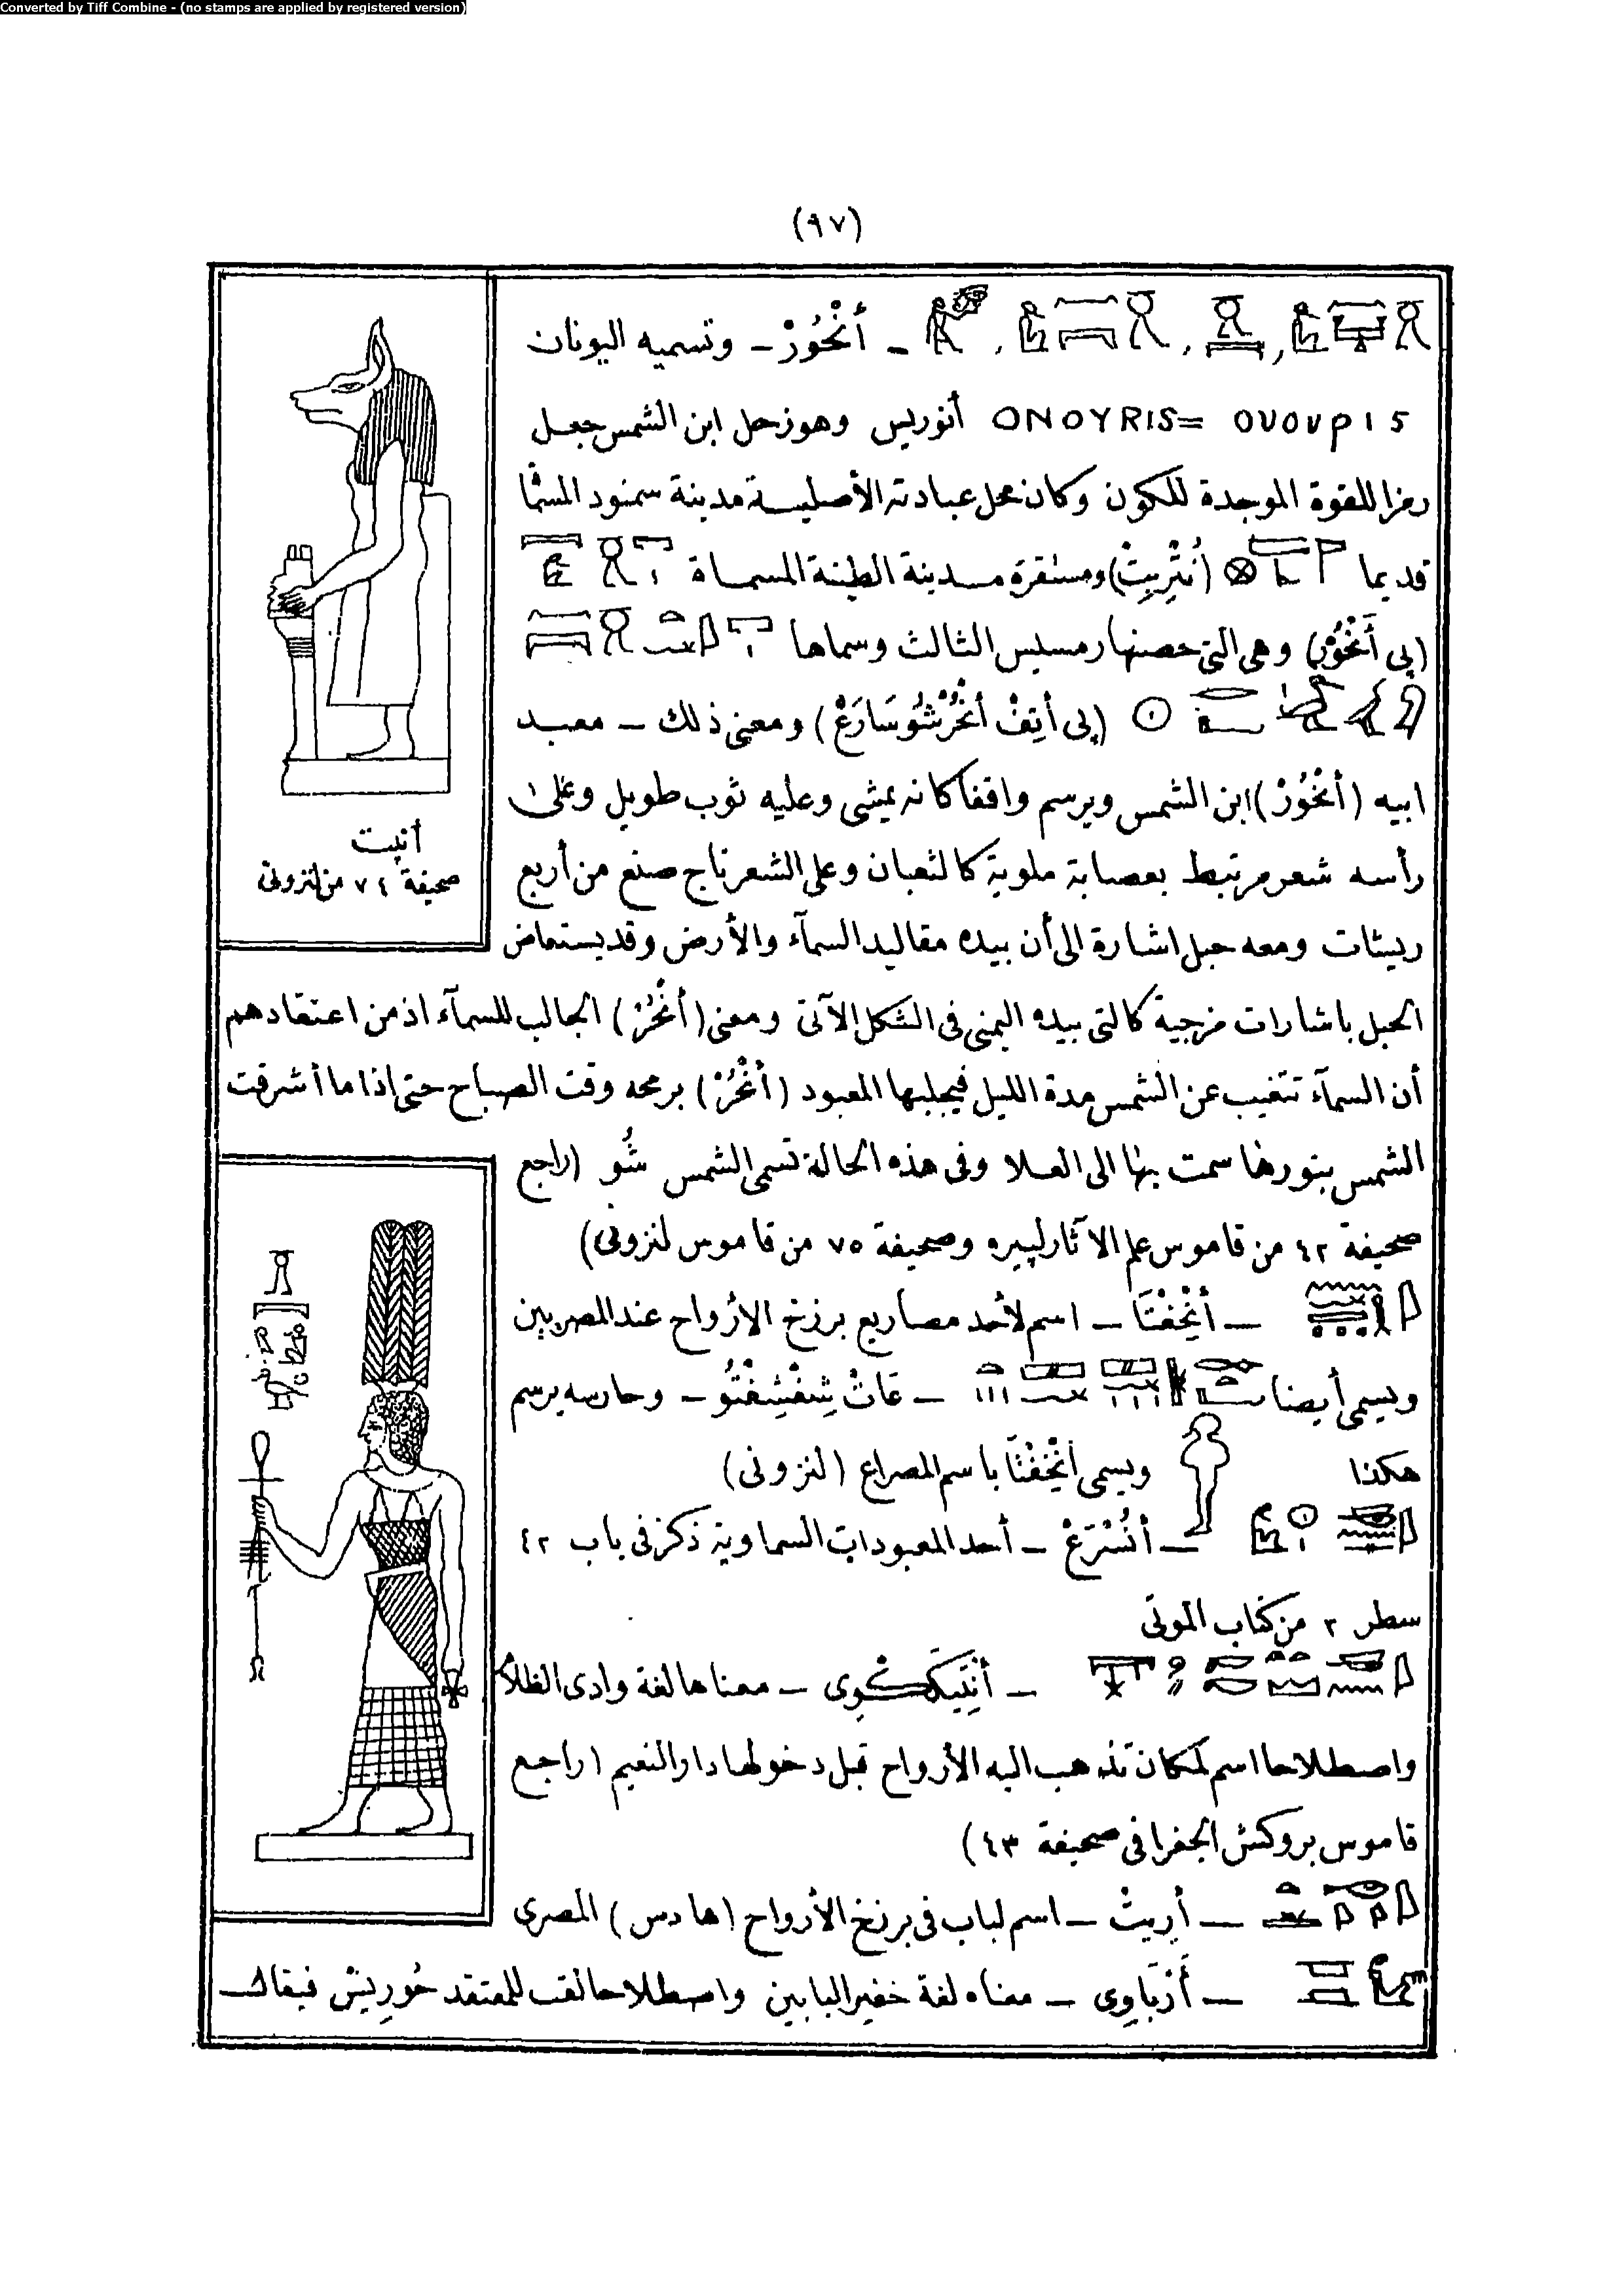 Converted by Tiff Combine - (no stamps are applied by registered version)
(٩٧)
ـ أَنْحُورْ ـ وتسميه اليونان
ONOYRIS= ονουρις أنوريس وهو زحل ابن الشمس جعل
رمزا للقوة الموجدة للكون وكان محل عبادته الأصلية مدينة سمنود المسماة
قديما (نُثْرِيتْ) ومستقره مدينة الطينة المسماة
(پى أَنْحُورْ) وهى التى حصنها رمسيس الثالث وسماها
(پى أتِفْ أنْحُرْشُوسَارَعْ) ومعنى ذلك ـ معبد
ابيه (أنْحُورْ) ابن الشمس ويرسم واقفا كانه يمشى وعليه ثوب طويل وعلى
رأسه شعر مرتبط بعصابة ملوية كالثعبان وعلى الشعر تاج صنع من أربع
ريشات ومعه حبل اشارة الى أن بيده مقاليد السمآء والأرض وقد يستعاض
الحبل باشارات مزجية كالتى بيده اليمنى فى الشكل الآتى ومعنى (أنْحُرْ) الجالب للسمآء اذ من اعتقادهم
أن السمآء تتغيب عن الشمس مدة الليل فيجلبها المعبود (أنْحُرْ) برمحه وقت الصباح حتى اذا ما أشرقت
الشمس بنورها سمت بها الى العلا وفى هذه الحالة تسمى الشمس شُو (راجع
صحيفة ٤٢ من قاموس علم الآثار لپيره وصحيفة ٧٥ من قاموس لنزونى)
ـ أنْخِفْتَا ـ اسم لأحد مصاريع برزخ الأرواح عند المصريين
ويسمى أيضا ـ عَاتْ شِفْشِفْتُو ـ وحارسه يرسم
هكذا ويسمى أنْخِفْتَا باسم المصراع (لنزونى)
ـ أنُسْرَعْ ـ أحد المعبودات السماوية ذكر فى باب ٤٢
سطر ٢ من كتاب الموتى
ـ أنْتِيكَكْوِى ـ معناها لغة وادى الظلام
واصطلاحا اسم لمكان تذهب اليه الأرواح قبل دخولها دار النعيم (راجع
قاموس بروكش الجغرافى صحيفة ٤٣)
ـ أرِيتْ ـ اسم لباب فى برزخ الأرواح (هادس) المصرى
ـ أرْبَاوِى ـ معناه لغة خفير البابين واصطلاحا لقب للمعتقد حُورِيسْ فيقال
أنپت
صحيفة ٧٤ من لنزونى